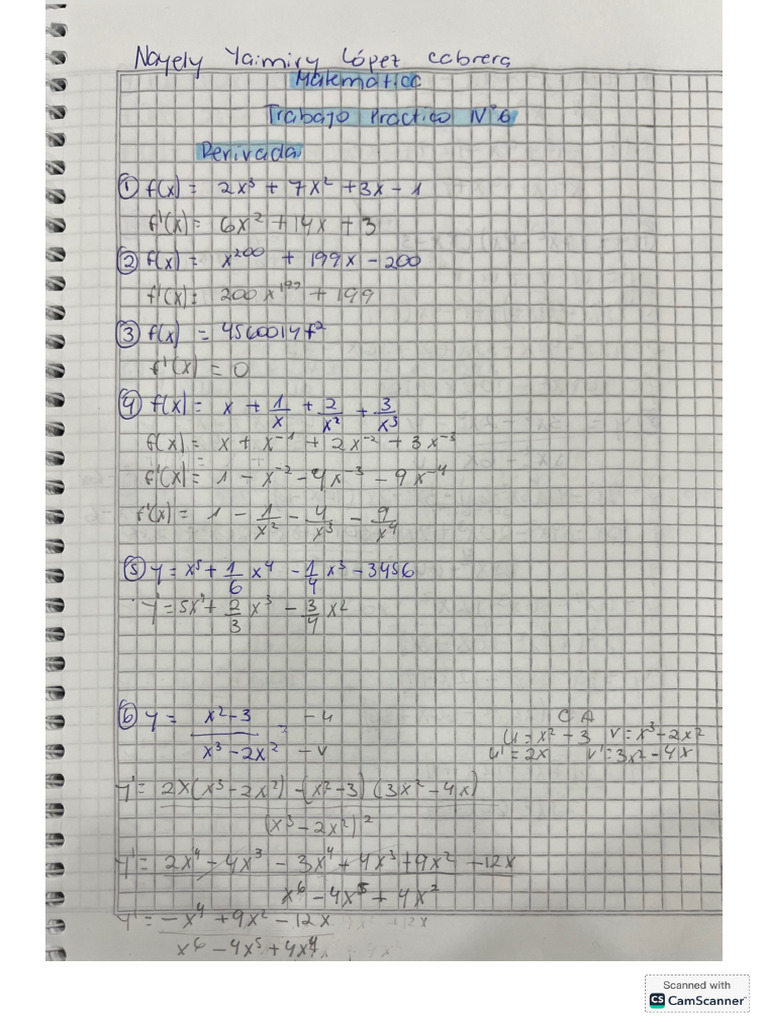 Nayely Yaimiry López cabrera
Matematica
Trabajo Practico N°6
Derivada
① f(x) = 2x³ + 7x² + 3x - 1
f'(x) = 6x² + 14x + 3
② f(x) = x²⁰⁰ + 199x - 200
f'(x) = 200x¹⁹⁹ + 199
③ f(x) = 4560014f²
f'(x) = 0
④ f(x) = x + 1/x + 2/x² + 3/x³
f(x) = x + x⁻¹ + 2x⁻² + 3x⁻³
f'(x) = 1 - x⁻² - 4x⁻³ - 9x⁻⁴
f'(x) = 1 - 1/x² - 4/x³ - 9/x⁴
⑤ y = x⁵ + 1/6 x⁴ - 1/4 x³ - 3456
y' = 5x⁴ + 2/3 x³ - 3/4 x²
⑥ y = x² - 3 / x³ - 2x² - u - v
C A
u = x² - 3 v = x³ - 2x²
u' = 2x v' = 3x² - 4x
y' = 2x(x³ - 2x²) - (x² - 3)(3x² - 4x) / (x³ - 2x²)²
y' = 2x⁴ - 4x³ - 3x⁴ + 4x³ + 9x² - 12x / x⁶ - 4x⁵ + 4x²
y' = -x⁴ + 9x² - 12x / x⁶ - 4x⁵ + 4x⁴
Scanned with
CS CamScanner